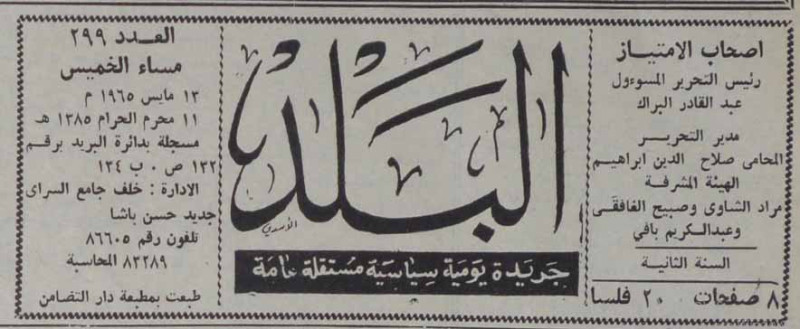 اصحاب الامتيــاز
رئيس التحرير المسوءول
عبد القادر البراك
مدير التحريــر
المحامى صلاح الدين ابراهيم
الهيئة المشرفة
مراد الشاوى وصبيح الغافقى
وعبدالكريم بافي
السنة الثانية
٨ صفحات ٢٠ فلسا
البلد
الأسدي
جريدة يومية سياسية مستقلة عامة
العــدد ٢٩٩
مساء الخميس
١٣ مايس ١٩٦٥ م
١١ محرم الحرام ١٣٨٥ هـ
مسجلة بدائرة البريد برقم
١٣٢ ص ٠ ب ١٣٤
الادارة : خلف جامع السراى
جديد حسن باشا
تلفون رقم ٨٦٦٠٥
٨٣٢٨٩ المحاسبة
طبعت بمطبعة دار التضامن